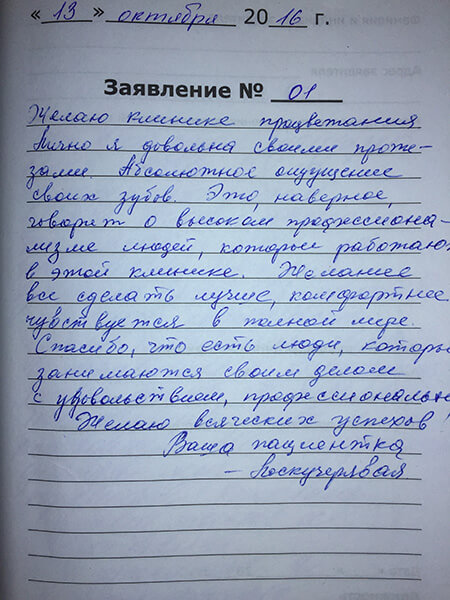 « 13 » октября 2016 г.
Заявление № 01
Желаю клинике процветания
Лично я довольна своими проте-
зами. Абсолютное ощущение
своих зубов. Это, наверное,
говорит о высоком профессиона-
лизме людей, которые работают
в этой клинике. Желание
все сделать лучше, комфортнее
чувствуется в полной мере.
Спасибо, что есть люди, которые
занимаются своим делом
с удовольствием, профессионально
Желаю всяческих успехов!
Ваша пациентка
– Лоскучерявая